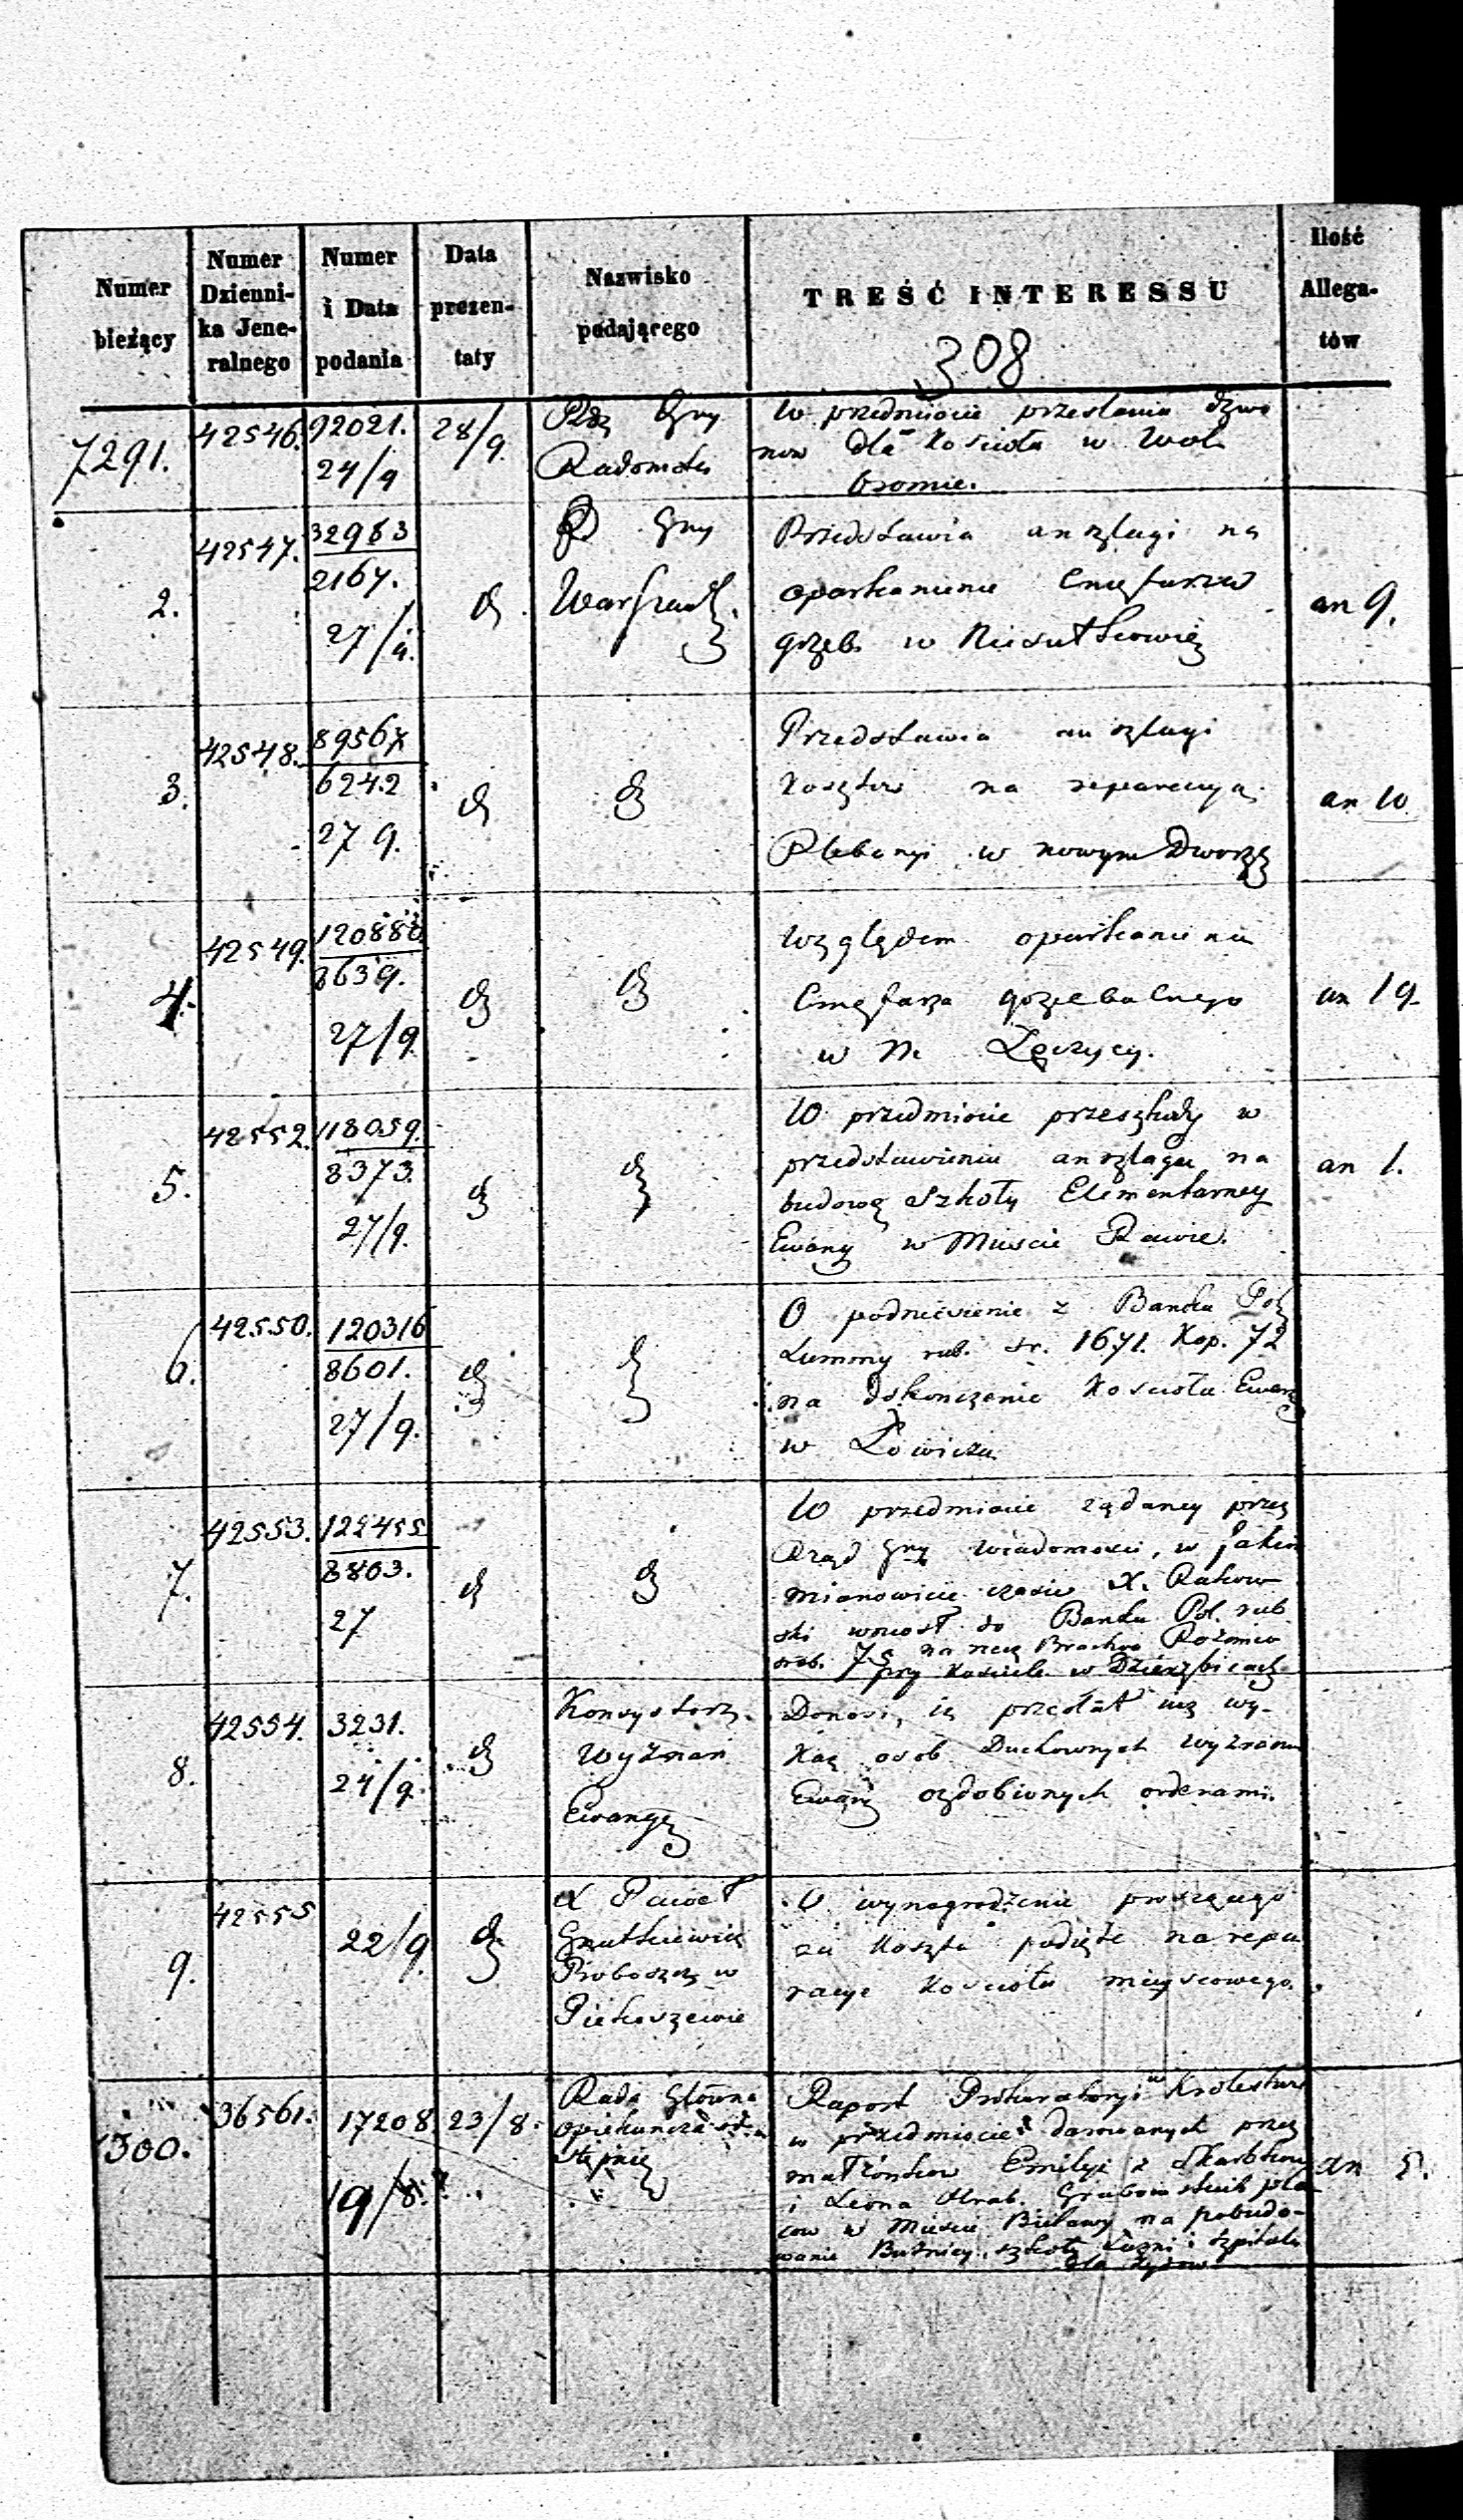 Numer
bieżący
Numer
Dzienni-
ka Jene-
ralnego
Numer
i Data
podania
Data
prezen-
taty
Nazwisko
podającego
TREŚĆ INTERESSU
308
Ilość
Allega-
tów
7291.
42546.
92021.
24/9
28/9.
Rzą Gny
Radomski
W przedmiocie przesłania dzwo
now dla Kościoła w Wol
bromie.
2.
42547.
32983
2167.
27/9.
Gny
Warszaw
Przedstawia anszlagi na
oparkanienie Cmętarza
grzeb. w Niesułkowie
an 9.
3.
42548.
89567
6242
27 9.
Przedstawia anszlagi
kosztów na reparacyą
Plebanyi w nowym Dworze
an 10
4.
42549.
120880
8639.
27/9.
Względem oparkanienia
Cmętarza grzebalnego
w M. Łęczycy.
an 19.
5.
42552.
118059.
8373.
27/9.
W przedmiocie przeszkody w
przedstawieniu anszlagu na
budowę Szkoły Elementarney
Ewang w Mieście Rawie.
an 1.
6.
42550.
120316
8601.
27/9.
O podniesienie z Banku Pol
Summy rub. sr. 1671. Kop. 72
na dokończenie Kościoła Ewang
w Łowiczu
7.
42553.
122455
8803.
27
W przedmiocie żądaney przez
Rząd Gny wiadomości, w jakim
mianowicie czasie X. Rakow
ski wniosł do Banku Pol. rub
sreb. 75 na rzecz Bractwa Rożańco
przy Kościele w Dzierzbicach
8.
42554.
3231.
24/9.
Konsystorz
Wyznań
Ewang
Donosi, iż przesłał już wy-
kaz osob Duchownych Wyznania
Ewang ozdobionych orderami.
9.
42555
22/9.
X Paweł
Gnutkiewicz
Proboszcz w
Piekoszewie
O wynagrodzenie proszącego
za koszta podjęte na repa
racye Kościoła mieyscowego.
7300.
36561.
17208.
19/8.
23/8.
Rada Główna
Opiekuńcza
Raport Prokuratoryi Krolestwa
w przedmiocie darowanych przez
małżonkow Emilyi z Skarbkow
i Leona Hrab. Grabowskich pla-
cow w Mieście Bielawy na pobudo-
wanie Bużnicy, szkoły Łaźni i szpitala
dla Żydow
an 5.